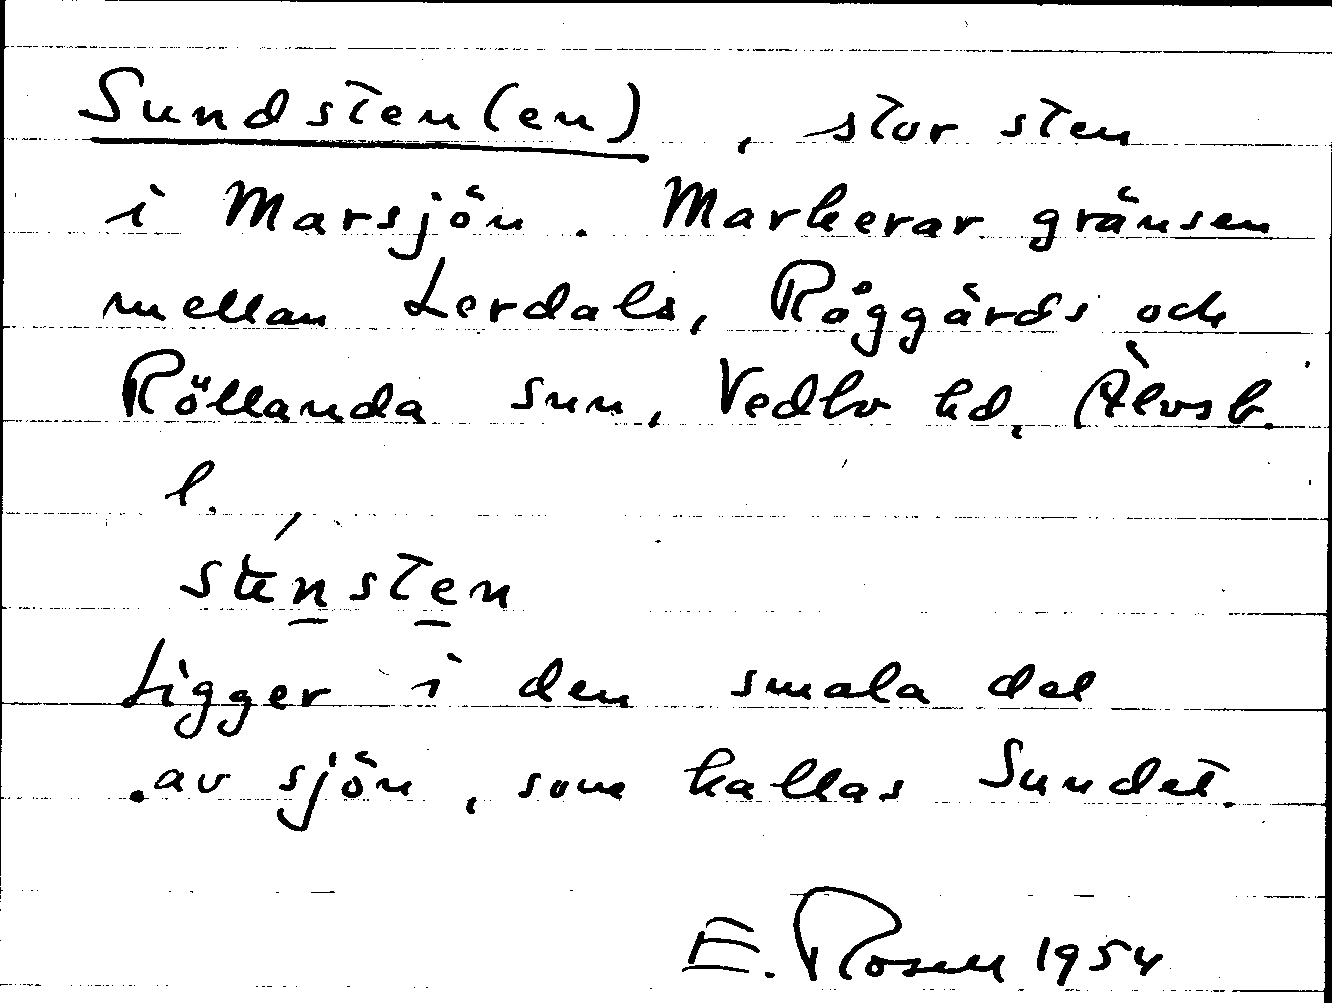 Sundsten(en), stor sten
i Marsjön. Markerar gränsen
mellan Lerdals, Råggärds och
Röllanda snn, Vedbo hd, Älvsb.
l.
Ligger i den smala del
av sjön, som kallas Sundet.
E. Rosell 1954